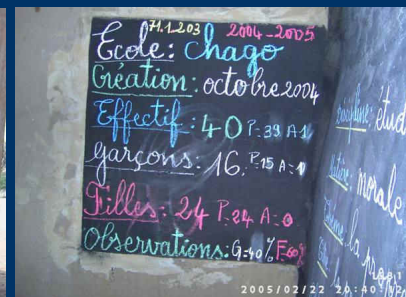 71.1.203 2004-2005
Ecole: Chago
Création: octobre 2004
Effectif: 40 P=39 A=1
garçons: 16. P=15 A=1
Filles: 24 P=24 A=0
Observations: G=40% F=60%
Discipline: étud
morale
Thème: la prop
2005/02/22 20:40